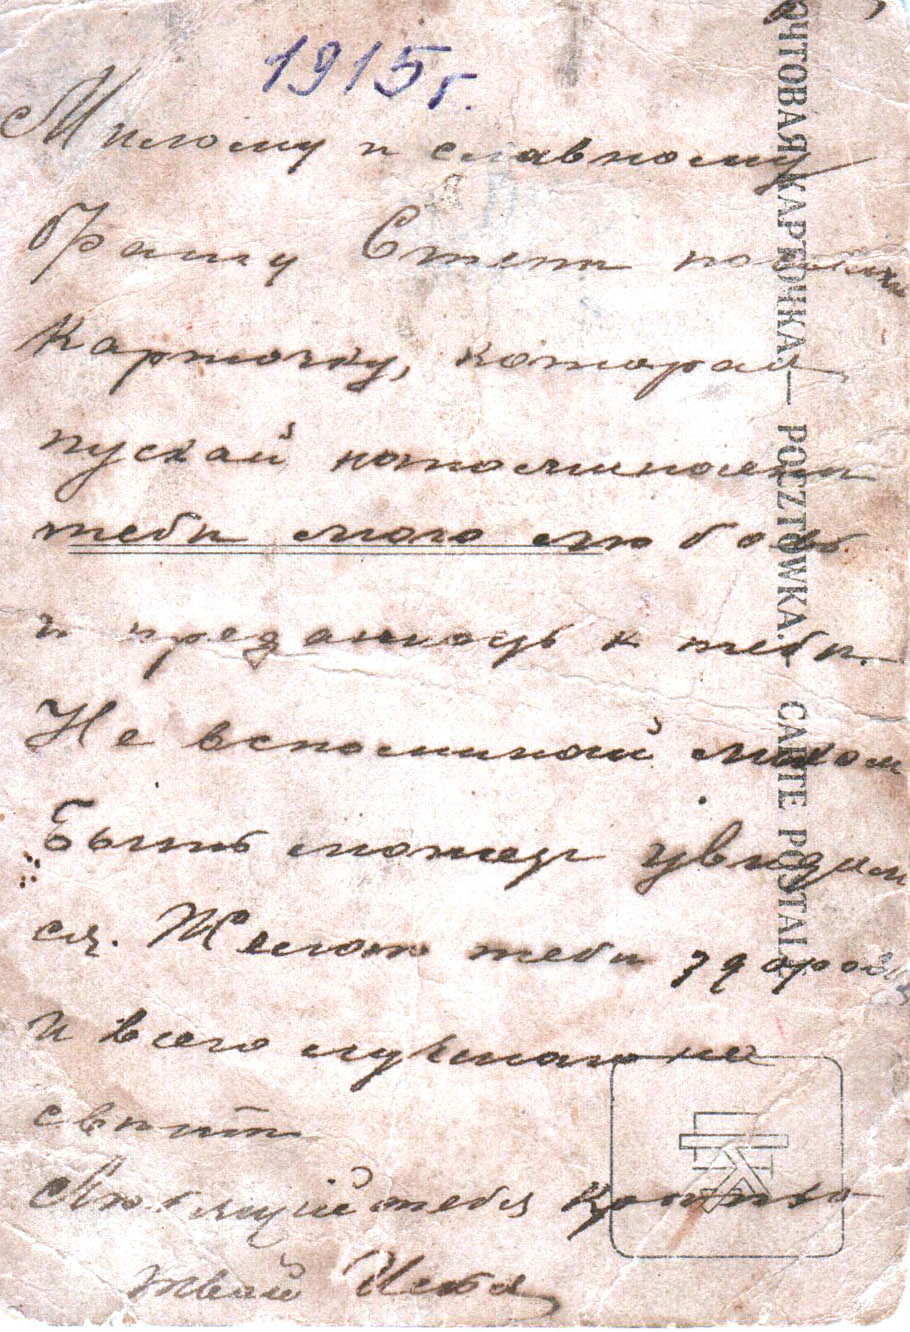 1915 г.
Милому и славному
брату Степе
карточку, которая
пускай напоминает
тебе мою любовь
и преданность к тебе.
Не вспоминай лихом
Быть может увидим
ся. Желаю тебе здоровья
и всего лучшаго на
свете
Любящий тебя крепко
твой
ПОЧТОВАЯ КАРТОЧКА — POCZTÓWKA. CARTE POSTALE